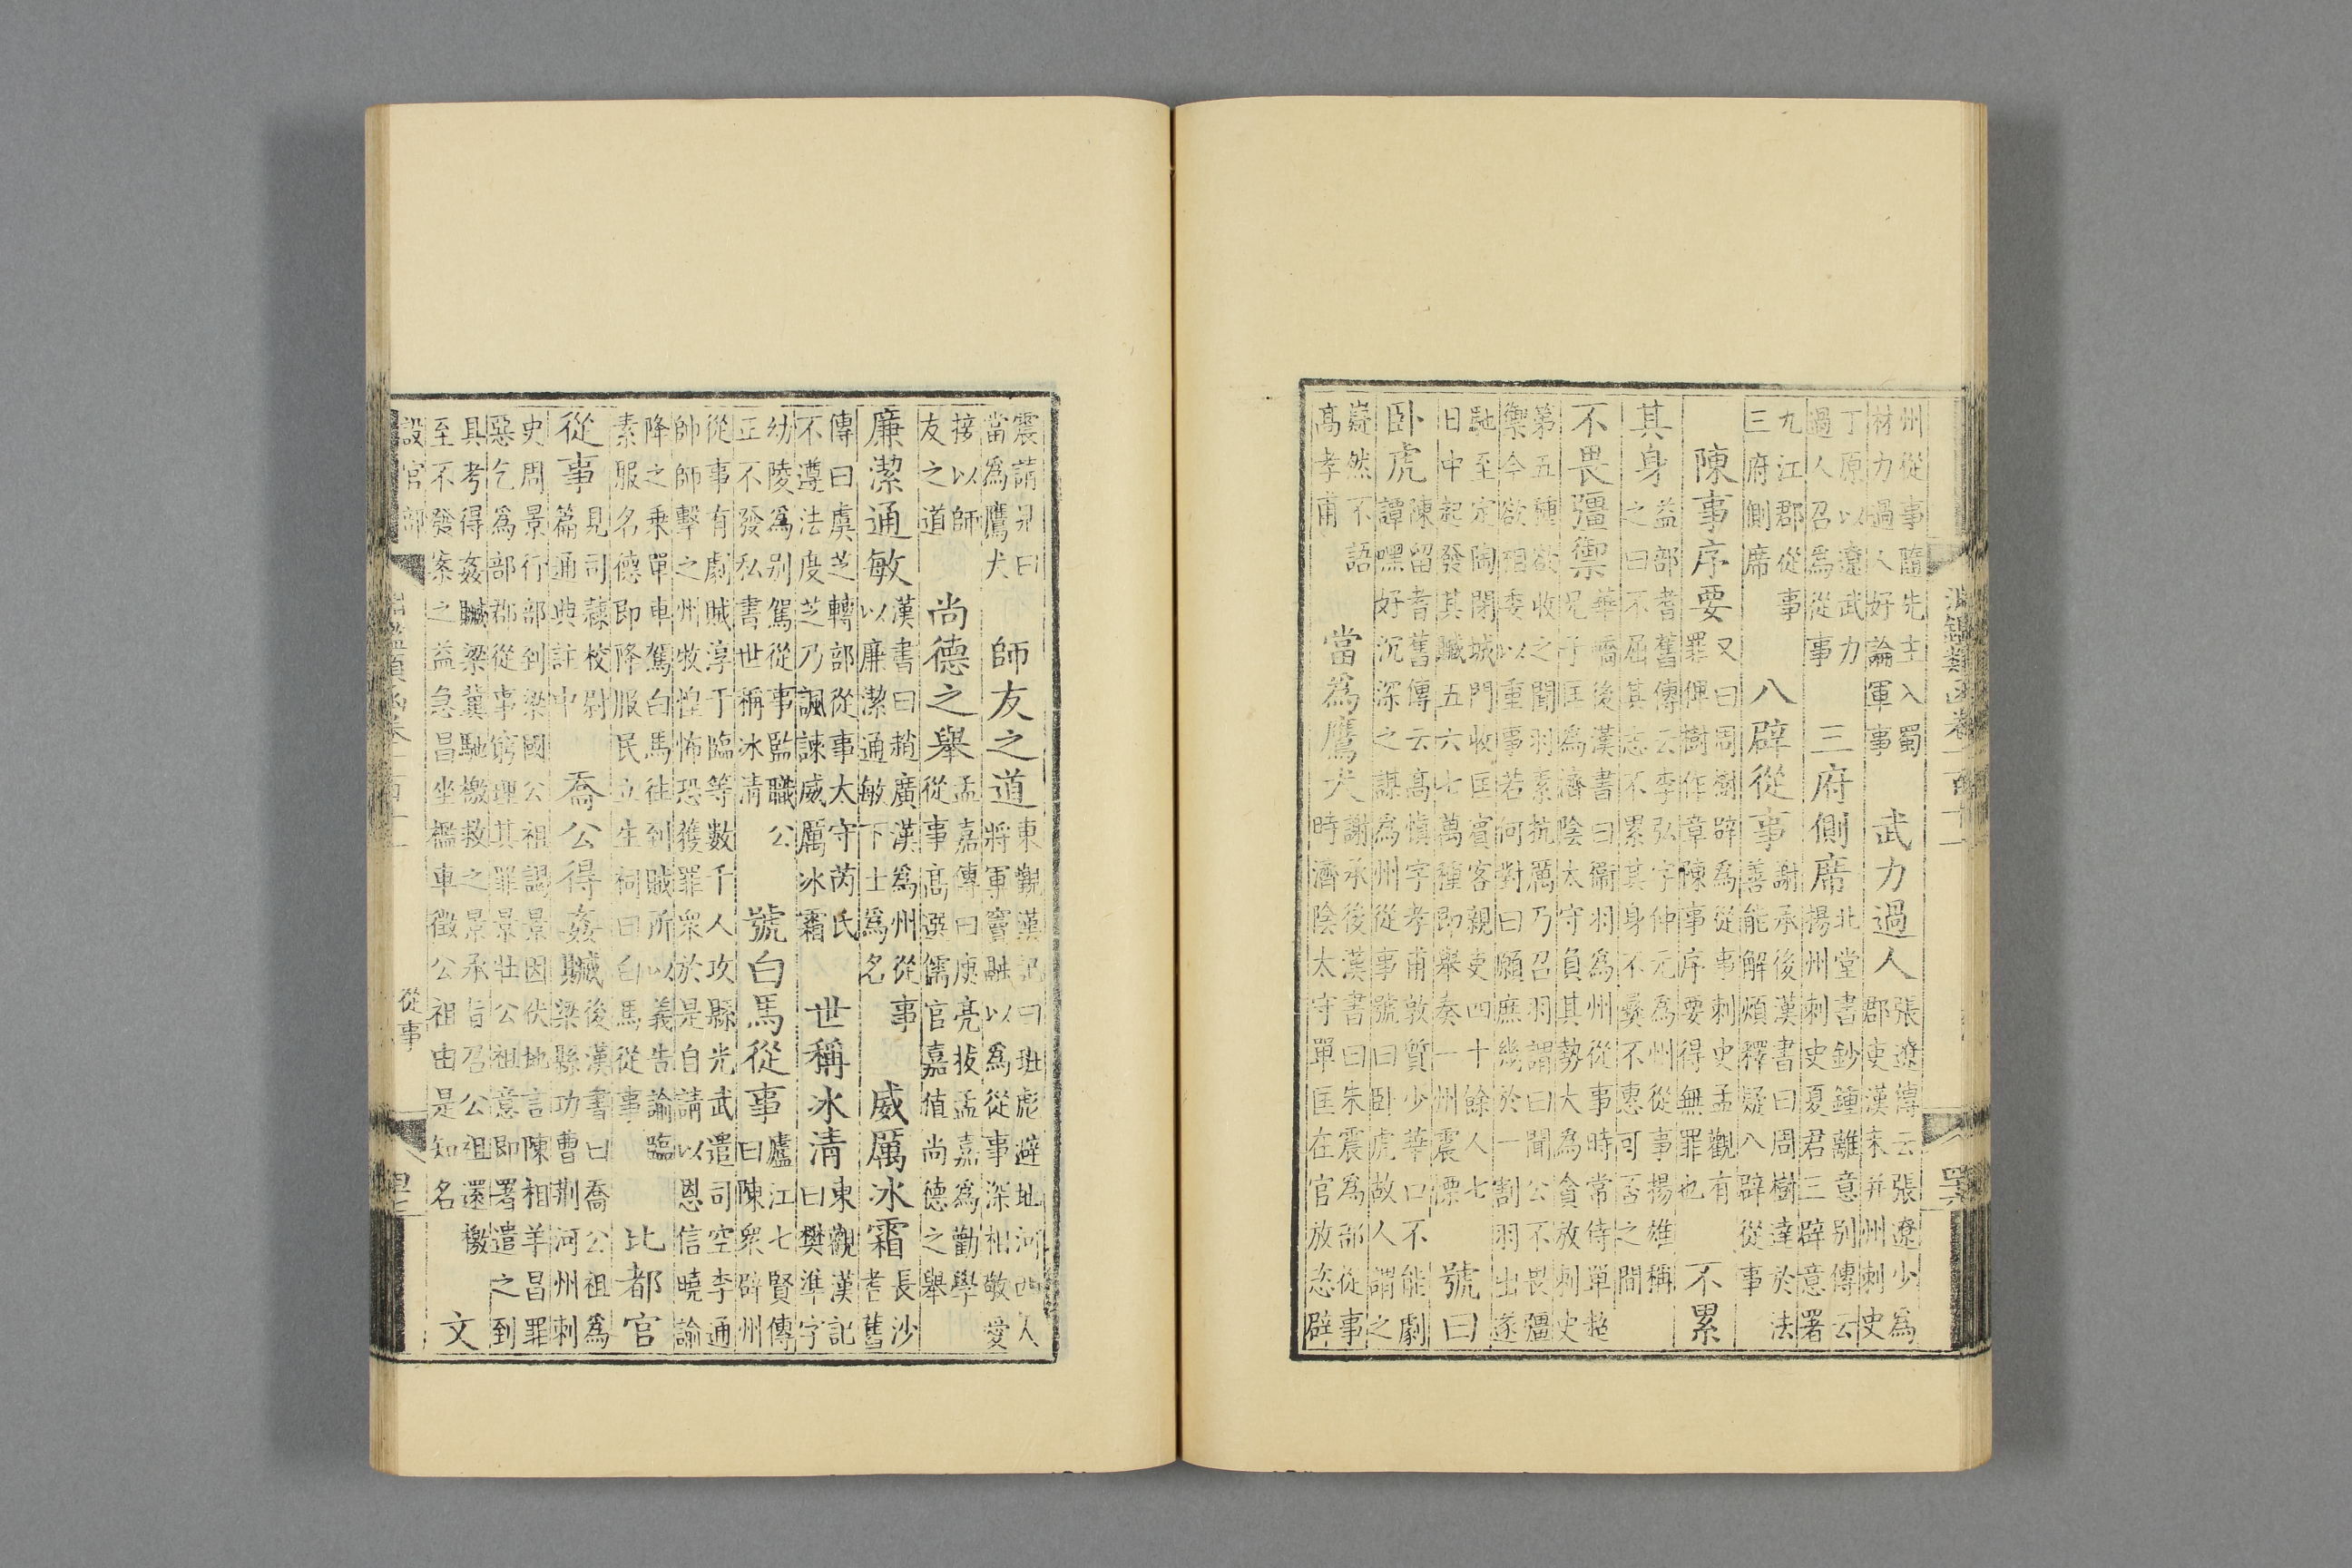 淵鑑類函卷一百十一
州從事隨先主入蜀
材力過人好論軍事
武力過人
張遼傳云張遼少為
郡吏漢末并州刺史
丁原以遼武力
過人召為從事
三府側席
北堂書鈔鍾離意别傳云
揚州刺史夏君三辟意署
九江郡從事
三府側席
八辟從事
謝承後漢書曰周樹達於法
善能解煩釋疑八辟從事
陳事序要
又曰周樹辟為從事刺史孟觀有
罪俾樹作章陳事序要得無罪也
不累
其身
益部耆舊傳云李弘字仲元為州從事揚雄稱
之曰不屈其志不累其身不彝不惠可否之間
不畏彊禦
華嶠後漢書曰衞羽為州從事時常侍單超
兄子匡為濟陰太守負其勢大為貪放刺史
第五種欲收之聞羽素抗厲乃召羽謂曰聞公不畏彊
禦今欲相委以重事若何對曰願庶幾於一割羽出遂
馳至定陶閉城門收匡賓客親吏四十餘人七
日中起發其贓五六七萬種即舉奏一州震慄
號曰
卧虎
陳留耆舊傳云髙慎字孝甫敦質少華口不能劇
譚嘿好沉深之謀為州從事號曰卧虎故人謂之
嶷然不語
髙孝甫
當為鷹犬
謝承後漢書曰朱震為部從事
時濟陰太守單匡在官放恣辟
震請見曰
當為鷹犬
師友之道
東觀漢記曰班彪避地河西大
將軍竇融以為從事深相敬愛
接以師
友之道
尚德之舉
孟嘉傳曰庾亮拔孟嘉為勸學
從事髙選儒官嘉值尚德之舉
廉潔通敏
漢書曰趙廣漢為州從事
以廉潔通敏下士為名
威厲冰霜
長沙
耆舊
傳曰虞芝轉部從事太守芮氏
不遵法度芝乃諷諫威厲冰霜
世稱冰清
東觀漢記
曰樊準字
幼陵為别駕從事監職公
正不發私書世稱冰清
號白馬從事
廬江七賢傳
曰陳衆辟州
從事有劇賊淳于臨等數千人攻縣光武遣司空李通
帥師擊之州牧惶怖恐獲罪衆於是自請以恩信曉諭
降之乘單車駕白馬往到賊所以義告諭臨
素服名德即降服民立生祠曰白馬從事
比都官
從事
見司隸校尉
篇通典註中
喬公得姦贓
後漢書曰喬公祖為
梁縣功曹荆河州刺
史周景行部到梁國公祖謁景因伏地言陳相羊昌罪
惡乞為部郡從事窮理其罪景壯公祖意即署遣之到
具考得姦贓梁冀馳檄救之景承旨召公祖還檄
至不發案之益急昌坐檻車徵公祖由是知名
文
設官部
從事